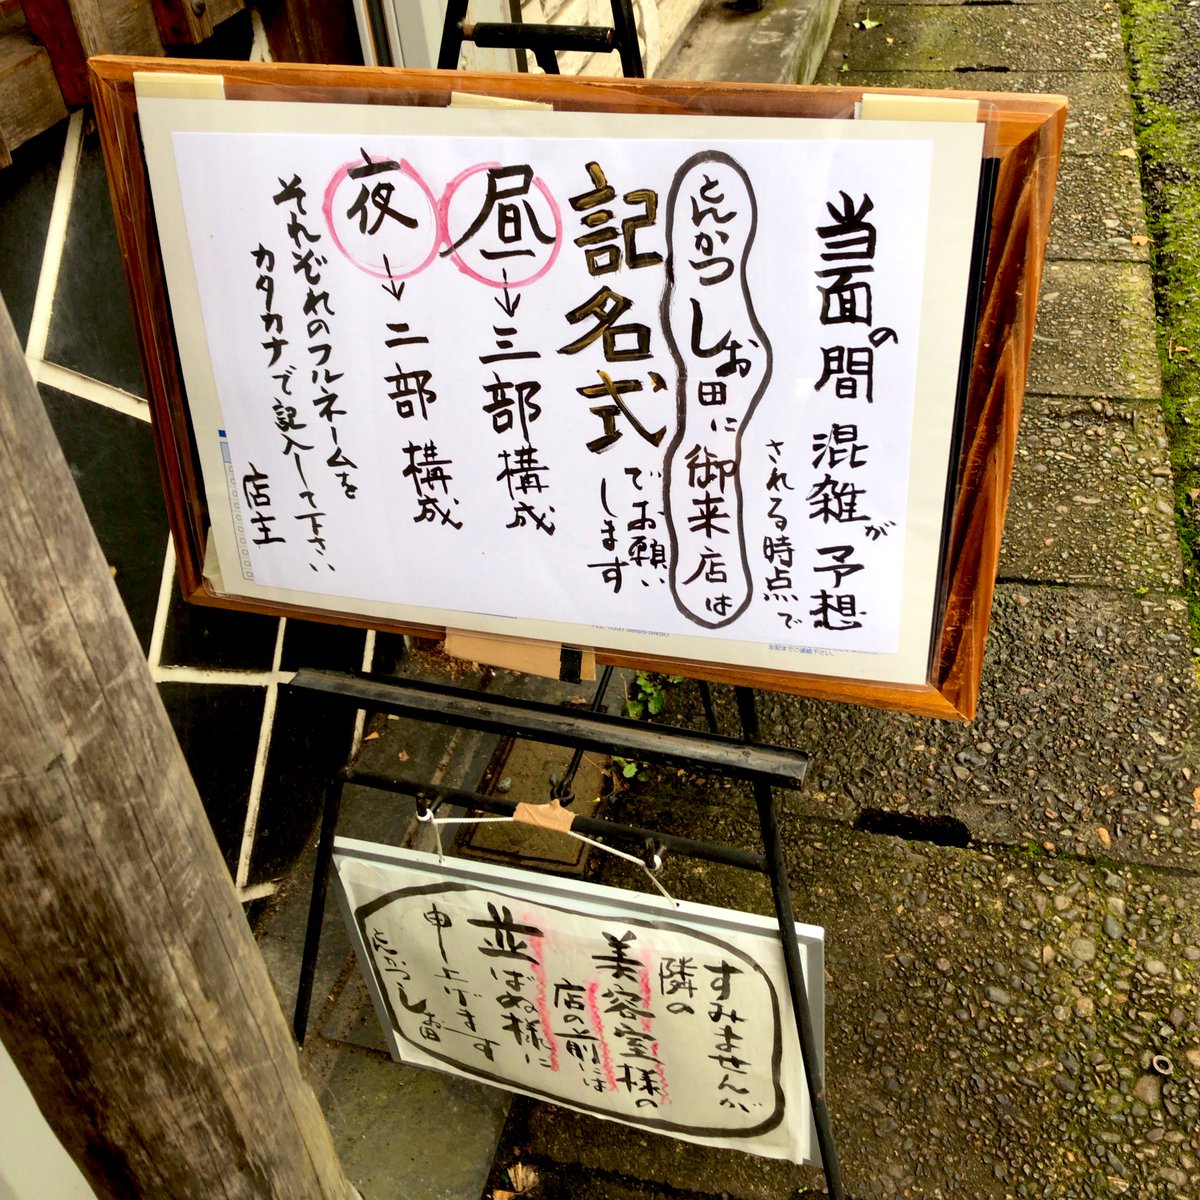 当面の間混雑が予想
される時点で
とんかつしお田に御来店は
記名式でお願い
します
昼→三部構成
夜→二部構成
それぞれのフルネームを
カタカナで記入して下さい
店主
すみませんが
隣の
美容室様の
店の前には
並ばぬ様に
申し上げます
とんかつしお田